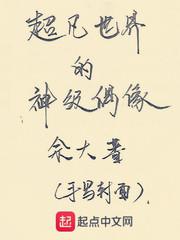 超凡世界
的
神级偶像
佘大書
（手写封面）
起 起点中文网